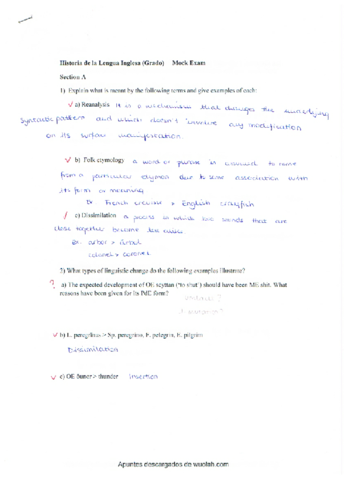 Historia de la Lengua Inglesa (Grado) Mock Exam
Section A
1) Explain what is meant by the following terms and give examples of each:
a) Reanalysis It is a mechanism that changes the underlying
syntactic pattern and which doesn't involve any modification
on its surface manifestation
b) Folk etymology A word or phrase is assumed to come
from a particular etymon due to some association with
its form or meaning
Ex French crevice > English crayfish
c) Dissimilation A process in which two sounds that are
close together become less alike.
Ex: arbor > árbol
colonel >
2) What types of linguistic change do the following examples illustrate?
? a) The expected development of OE scyttan ('to shut') should have been ME shit. What
reasons have been given for its ME form?
b) L. peregrinus > Sp. peregrino, F. pelegrin, E. pilgrim
Dissimilation
c) OE þunor > thunder Insertion
Apuntes descargados de wuolah.com